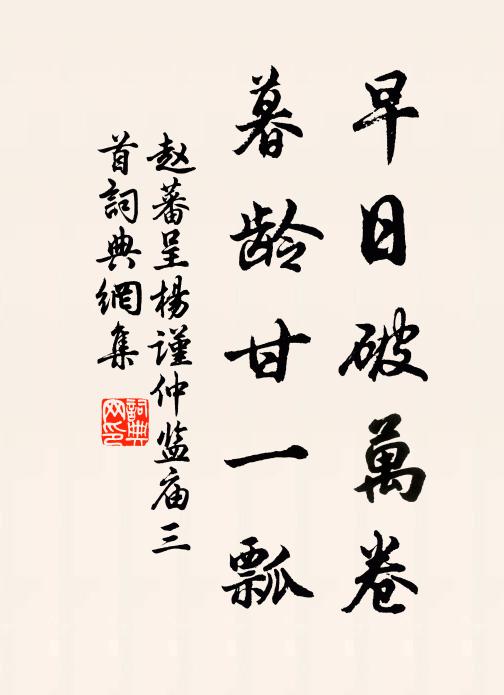 早日破萬卷
暮龄甘一瓢
赵蕃呈楊謹仲监庙三
首詞典網集
詞典
网印